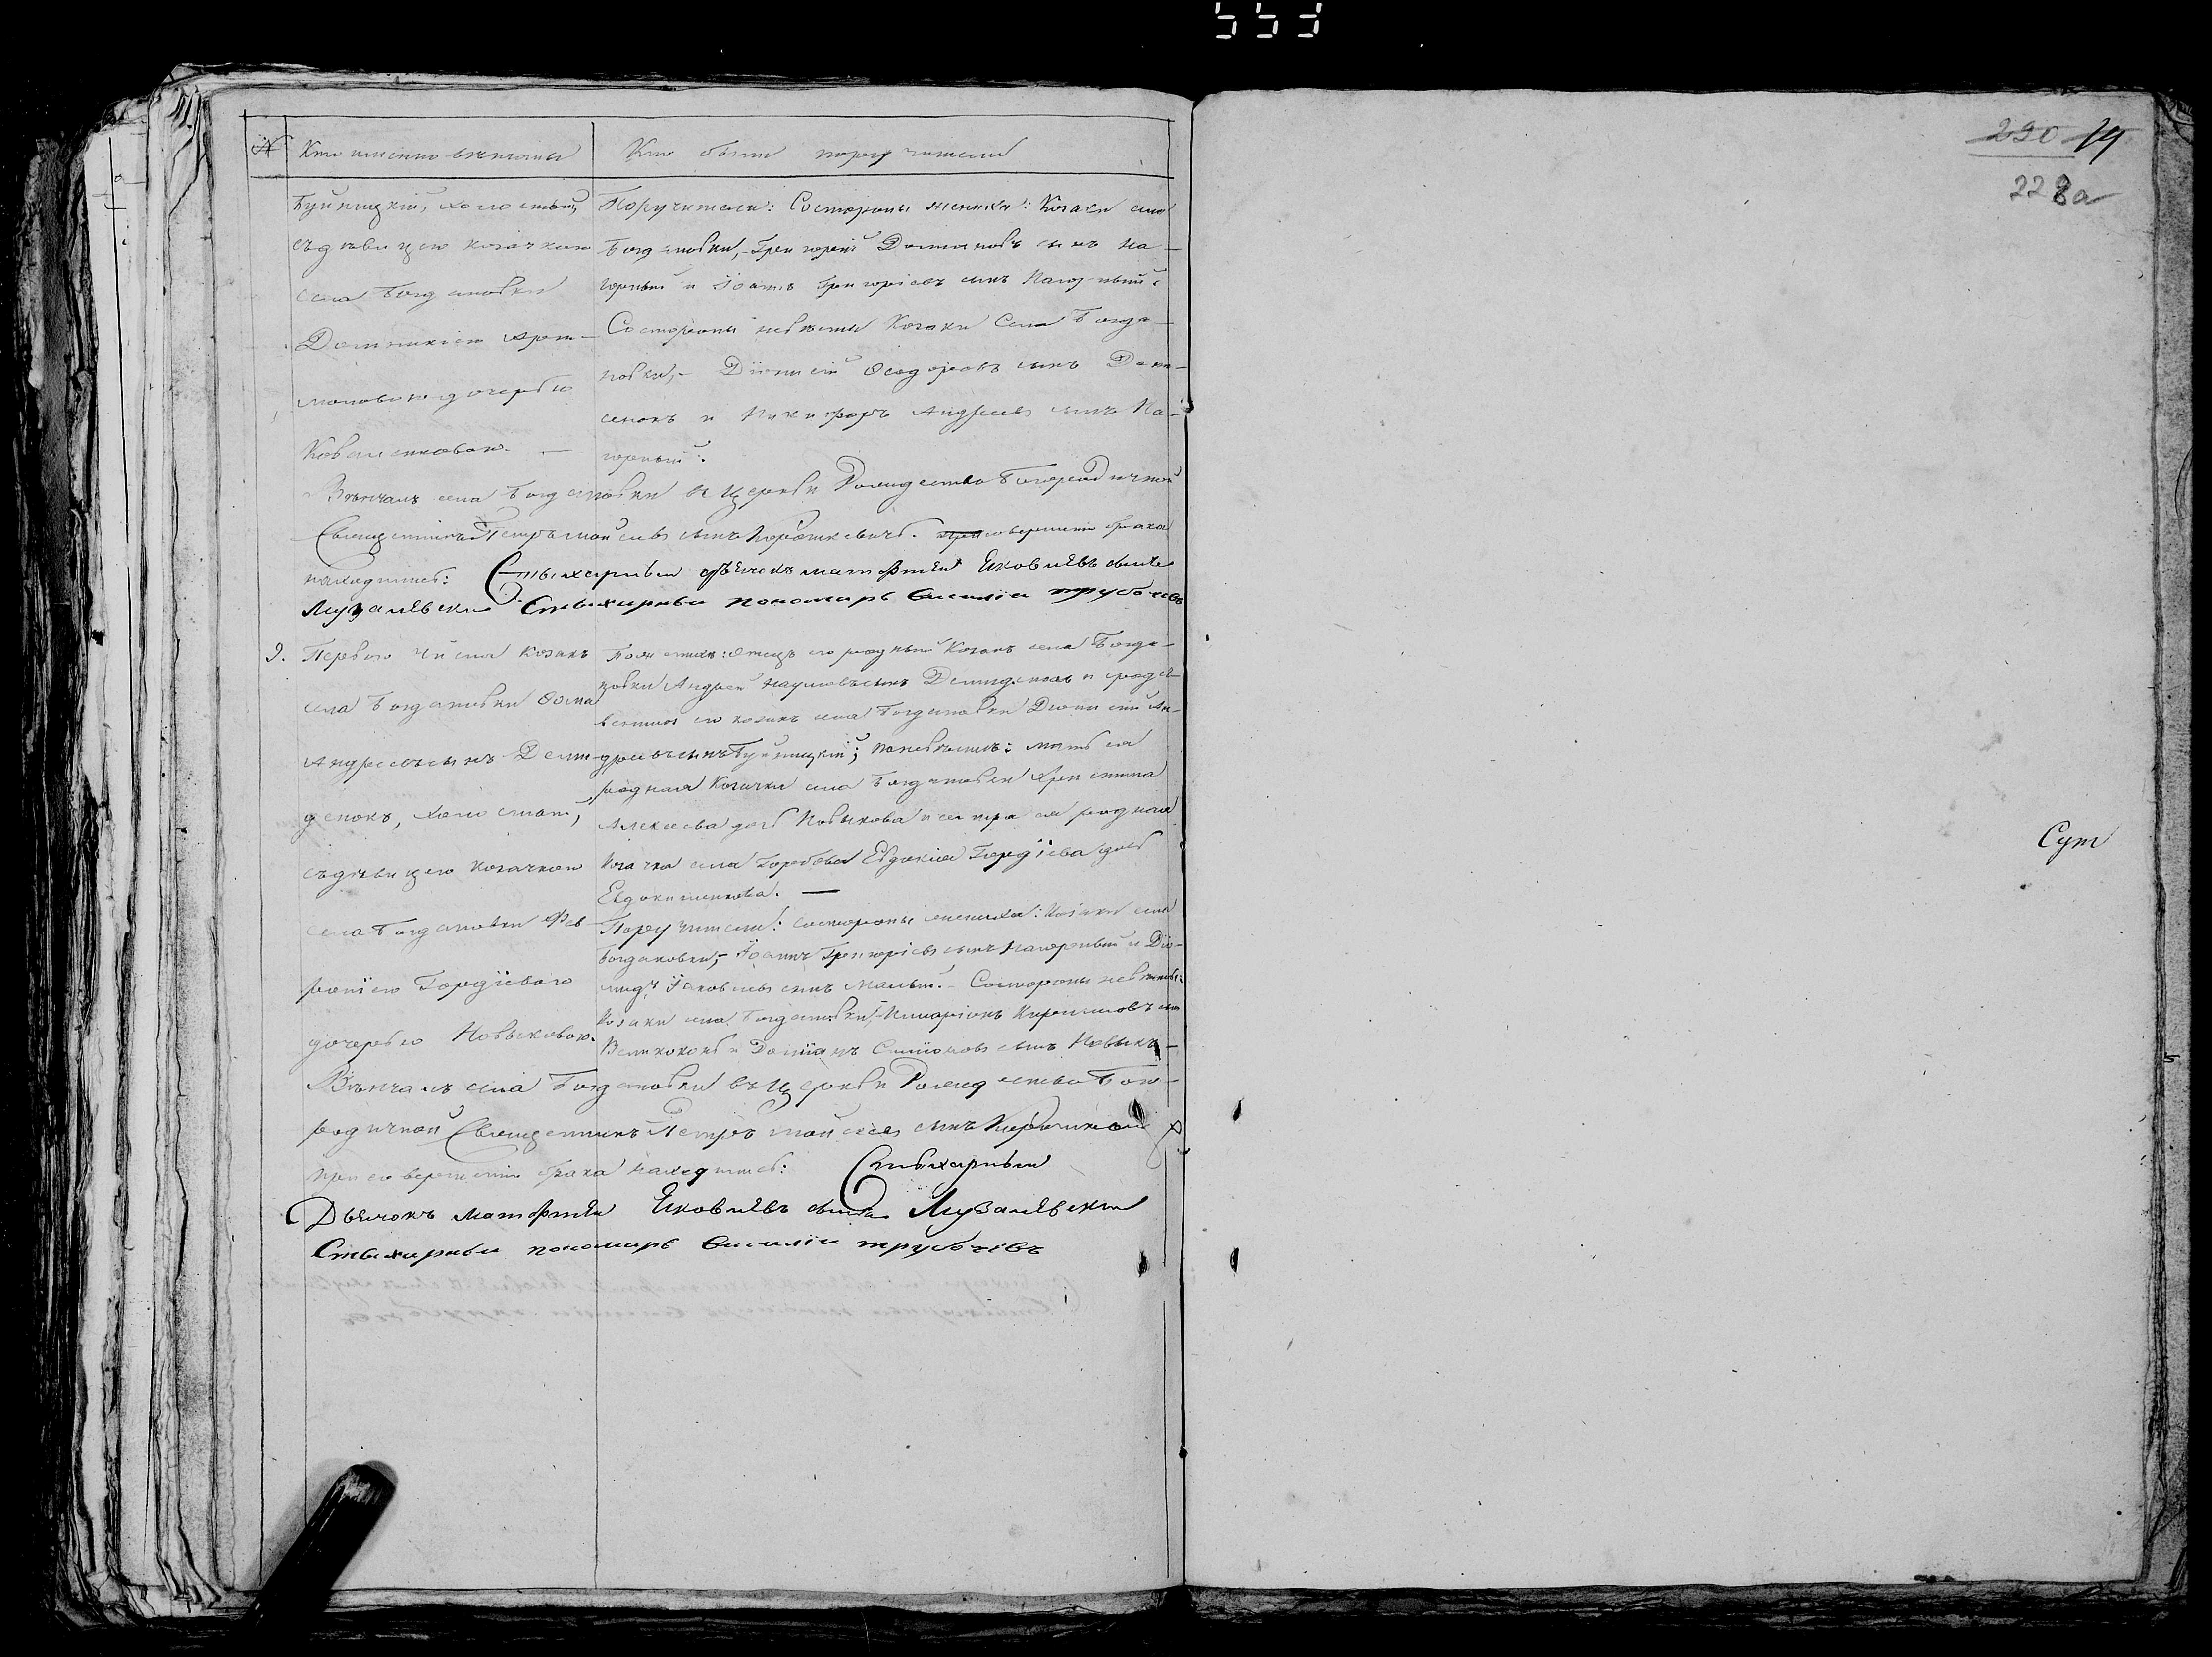 553
№ Кто именно венчаны Кто были поручители
Буйницкій, холостый,
съ девицею козачкою
села Богдановки
Домникіею Арте-
моновою дочерью
Коваленковою. —
Поручители: Состороны жениха: Козаки села
Богдановки,- Григорій Домановъ сынъ На-
горный и Іоаннъ Григоріевъ сынъ Нагорный.
Состороны невесты Козаки Села Богда-
новки,- Діонисій Ѳеодоровъ сынъ
и Никифоръ Андреевъ сынъ На-
горный.
Венчалъ села Богдановки въ Церкви Рождество Богородичной
Священникъ Петръ Моисеевъ сынъ при совершеніи брака
находились: Стыхарный дьячокъ матфтей Яковлевъ сынъ
Музалевски Стыхирныи пономарь Василіи трубочевъ
9. Первого числа Козакъ
села Богдановки Ѳома
Андреевъ сынъ Деми-
денокъ, холостой,
съ девицею козачкою
села Богдановки Фев
роніею Гордіевою
дочерью Новыковою.
По женихъ: отецъ его родный Козакъ села Богда-
новки Андрей Наумовъ сынъ Демиденокъ и родс-
венникъ его козакъ села Богдановки Діонисій Ан-
дреевъ сынъ Буйницкій; по невестъ: мать ея
родная Козачка села Богдановки Христина
Алексеева дочь Новыкова и сестра ея родная
Козачка села Горбова Евдокія Гордіева дочь
Евдокименкова. —
Поручители: состороны жениха: Козаки села
Богдановки,- Іоаннъ Григоріевъ сынъ Нагорный и Діо-
мидъ Іаковлевъ сынъ Малый.- Состороны невесты:
Козаки села Богдановки,- Иларіонъ Кириловъ сынъ
и Даміанъ Симіоновъ сынъ Новыкъ-
Венчалъ села Богдановки въ Церкви Рождество Бого-
родичной Священникъ Петръ Моисеевъ сынъ
при совершеніи брака находились: Стыхарныи
Дьячокъ Матфтей Яковлевъ сынъ Музалевски
Стыхирныи пономарь Василіи трубочевъ
290 19
228а
Сут